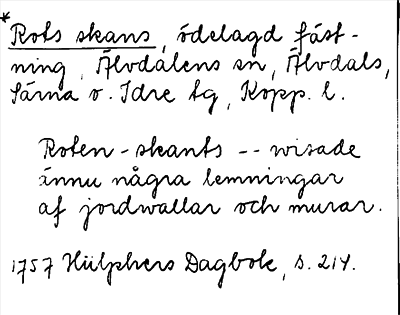 *Rots skans, ödelagd fäst-
ning, Älvdalens sn, Älvdals,
Särna o. Idre tg, Kopp. l.
Roten-skants -- wisade
ännu några lemningar
af jordwallar och murar.
1757 Hülphers Dagbok, s. 214.